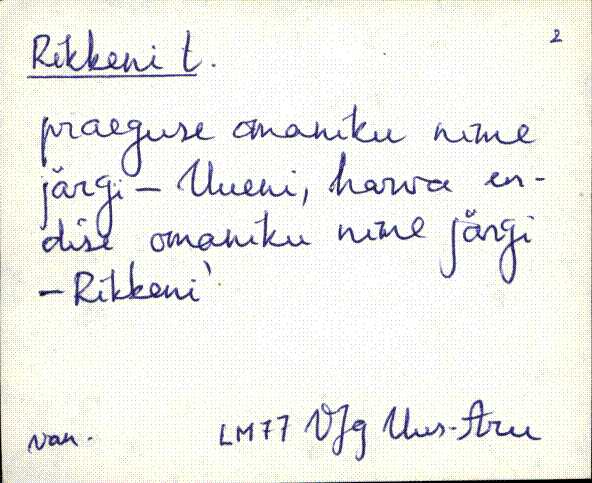 2
Rikkeni t.
praeguse omaniku nime
järgi – Uueni, harva en-
dise omaniku nime järgi
– Rikkeni'
van. LM77 VJg Uus-Aru